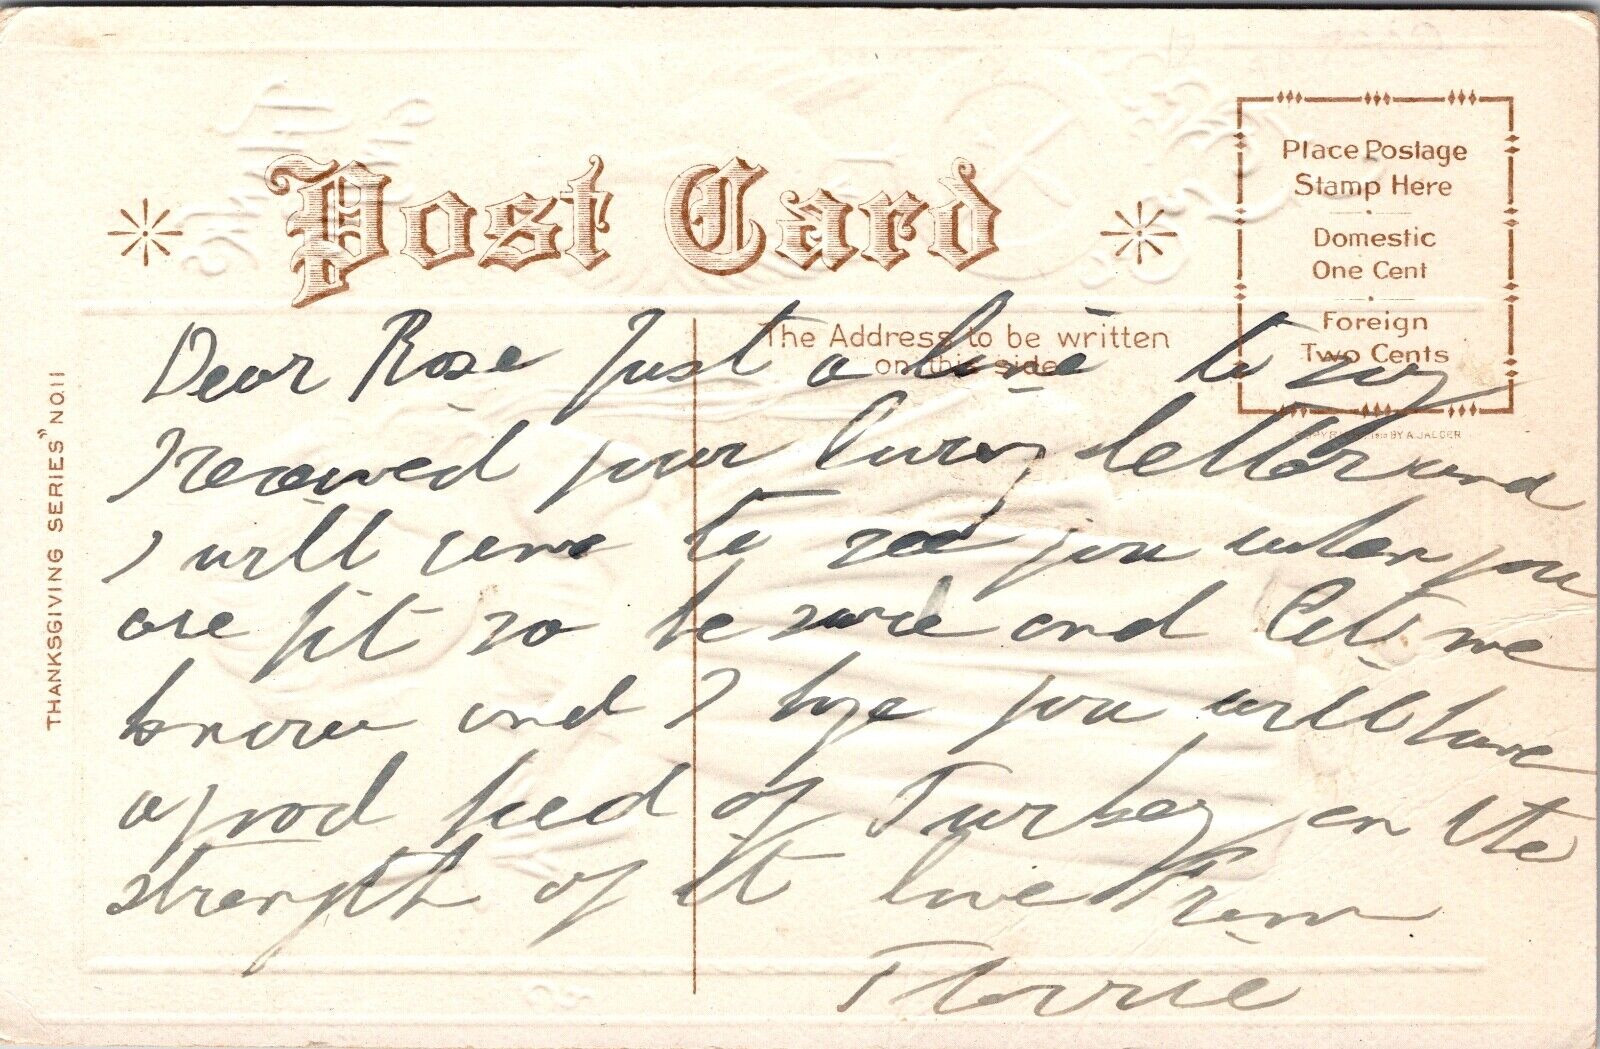 Post Card
Place Postage
Stamp Here
Domestic
One Cent
Foreign
Two Cents
COPYRIGHT, 1910 BY A. JAEGER
The Address to be written
on this side
THANKSGIVING SERIES" NO. 11
Dear Rose Just a line to say
I received your letter and
I will come to see you when you
are fit so be sure and let me
know and I hope you will have
a good feed of Turkey on the
strength of it love From
Florrie